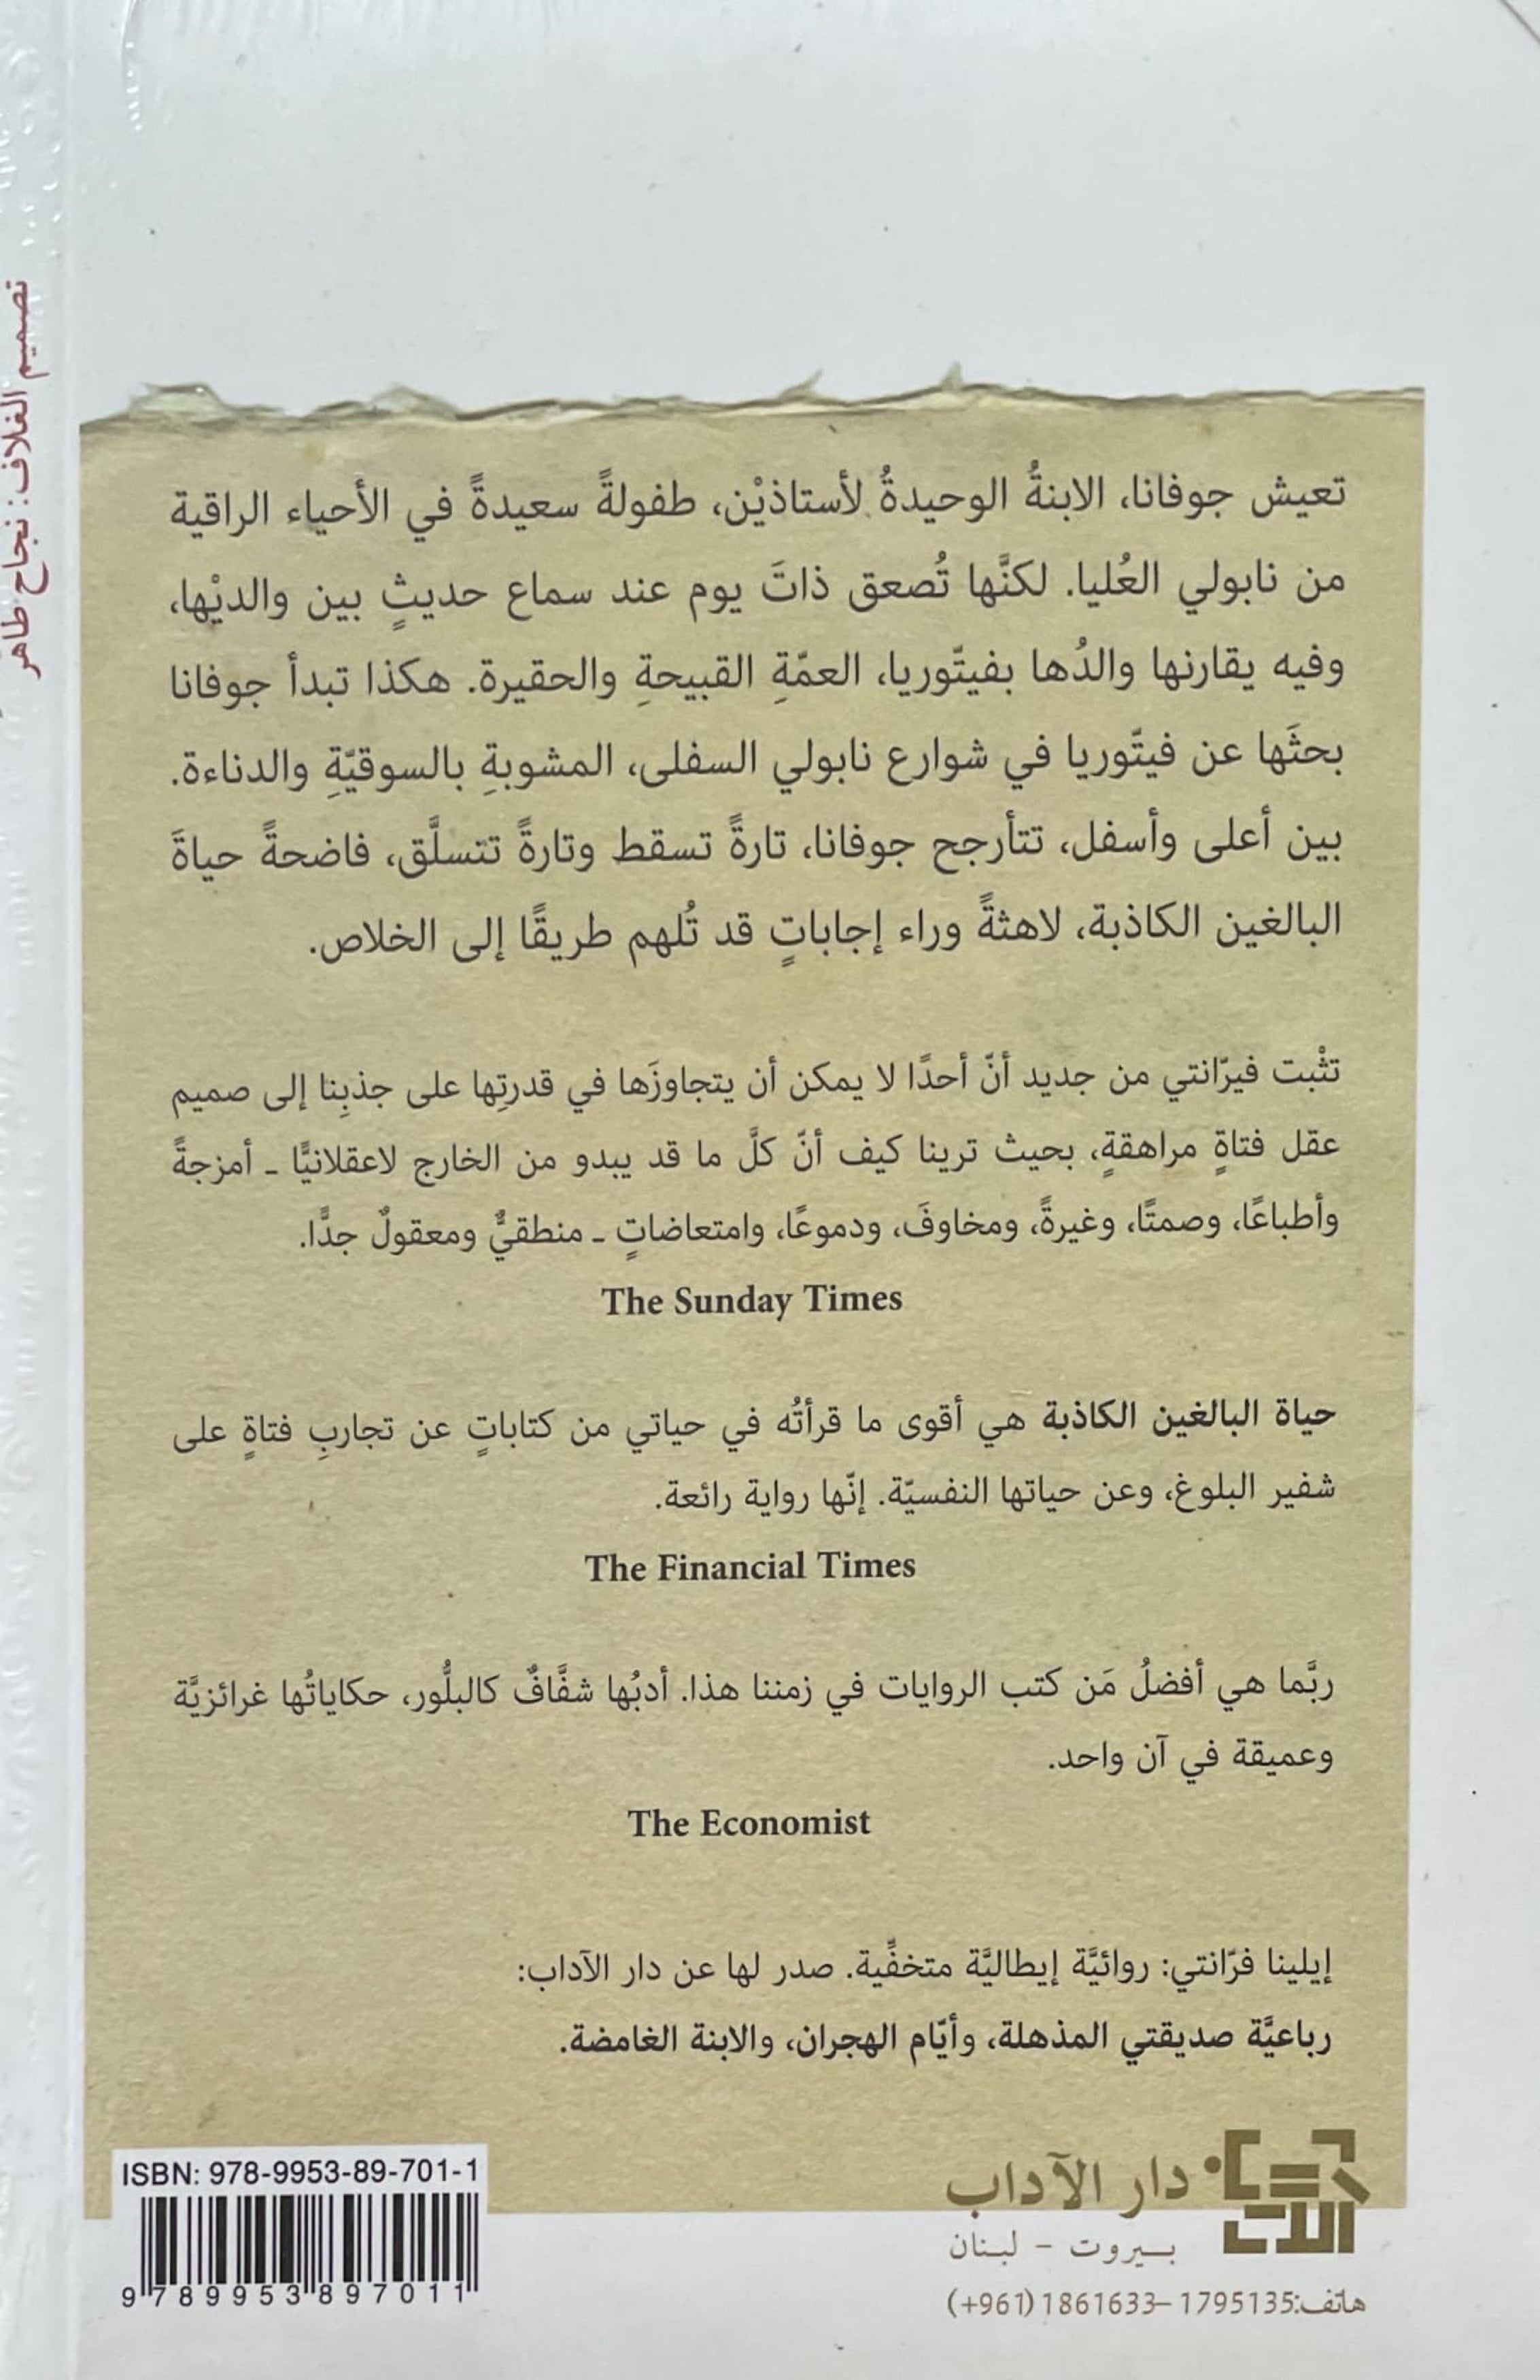 تصميم الغلاف: نجاح طاهر
تعيش جوفانا، الابنةُ الوحيدةُ لأستاذيْن، طفولةً سعيدةً في الأحياء الراقية
من نابولي العُليا. لكنَّها تُصعق ذاتَ يوم عند سماع حديثٍ بين والديْها،
وفيه يقارنها والدُها بفيتّوريا، العمّةِ القبيحةِ والحقيرة. هكذا تبدأ جوفانا
بحثَها عن فيتّوريا في شوارع نابولي السفلى، المشوبةِ بالسوقيّةِ والدناءة.
بين أعلى وأسفل، تتأرجح جوفانا، تارةً تسقط وتارةً تتسلَّق، فاضحةً حياةَ
البالغين الكاذبة، لاهثةً وراء إجاباتٍ قد تُلهم طريقًا إلى الخلاص.
تثْبت فيرّانتي من جديد أنّ أحدًا لا يمكن أن يتجاوزَها في قدرتِها على جذبِنا إلى صميم
عقل فتاةٍ مراهقةٍ، بحيث ترينا كيف أنّ كلَّ ما قد يبدو من الخارج لاعقلانيًّا ـ أمزجةً
وأطباعًا، وصمتًا، وغيرةً، ومخاوفَ، ودموعًا، وامتعاضاتٍ ـ منطقيٌّ ومعقولٌ جدًّا.
The Sunday Times
حياة البالغين الكاذبة هي أقوى ما قرأتُه في حياتي من كتاباتٍ عن تجاربِ فتاةٍ على
شفير البلوغ، وعن حياتها النفسيّة. إنّها رواية رائعة.
The Financial Times
ربَّما هي أفضلُ مَن كتب الروايات في زمننا هذا. أدبُها شفَّافٌ كالبلُّور، حكاياتُها غرائزيَّة
وعميقة في آن واحد.
The Economist
إيلينا فرّانتي: روائيَّة إيطاليَّة متخفِّية. صدر لها عن دار الآداب:
رباعيَّة صديقتي المذهلة، وأيّام الهجران، والابنة الغامضة.
ISBN: 978-9953-89-701-1
9 789953 897011
دار الآداب
بيروت - لبنان
هاتف: 1795135 – 1861633 (961+)